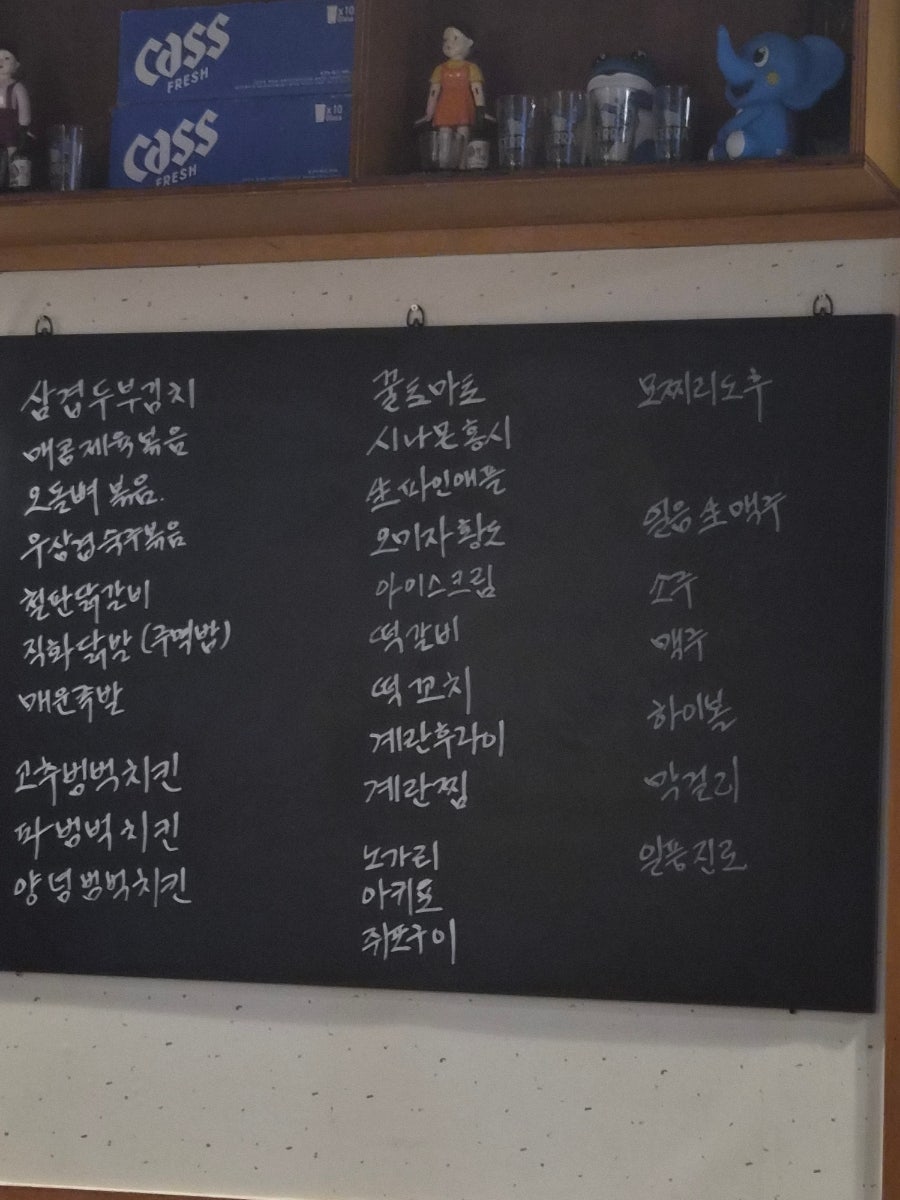 cass
FRESH
x10
Glass
cass
FRESH
x10
Glass
삼겹두부김치
매콤제육볶음
오돌뼈 볶음.
우삼겹숙주볶음
철판닭갈비
직화닭발 (주먹밥)
매운족발
고추벙벅치킨
파벙벅치킨
양념벙벅치킨
꿀토마토
시나몬홍시
生파인애플
오미자황도
아이스크림
떡갈비
떡꼬치
계란후라이
계란찜
노가리
아키포
쥐포구이
모찌리도후
얼음生맥주
소주
맥주
하이볼
막걸리
일품진로